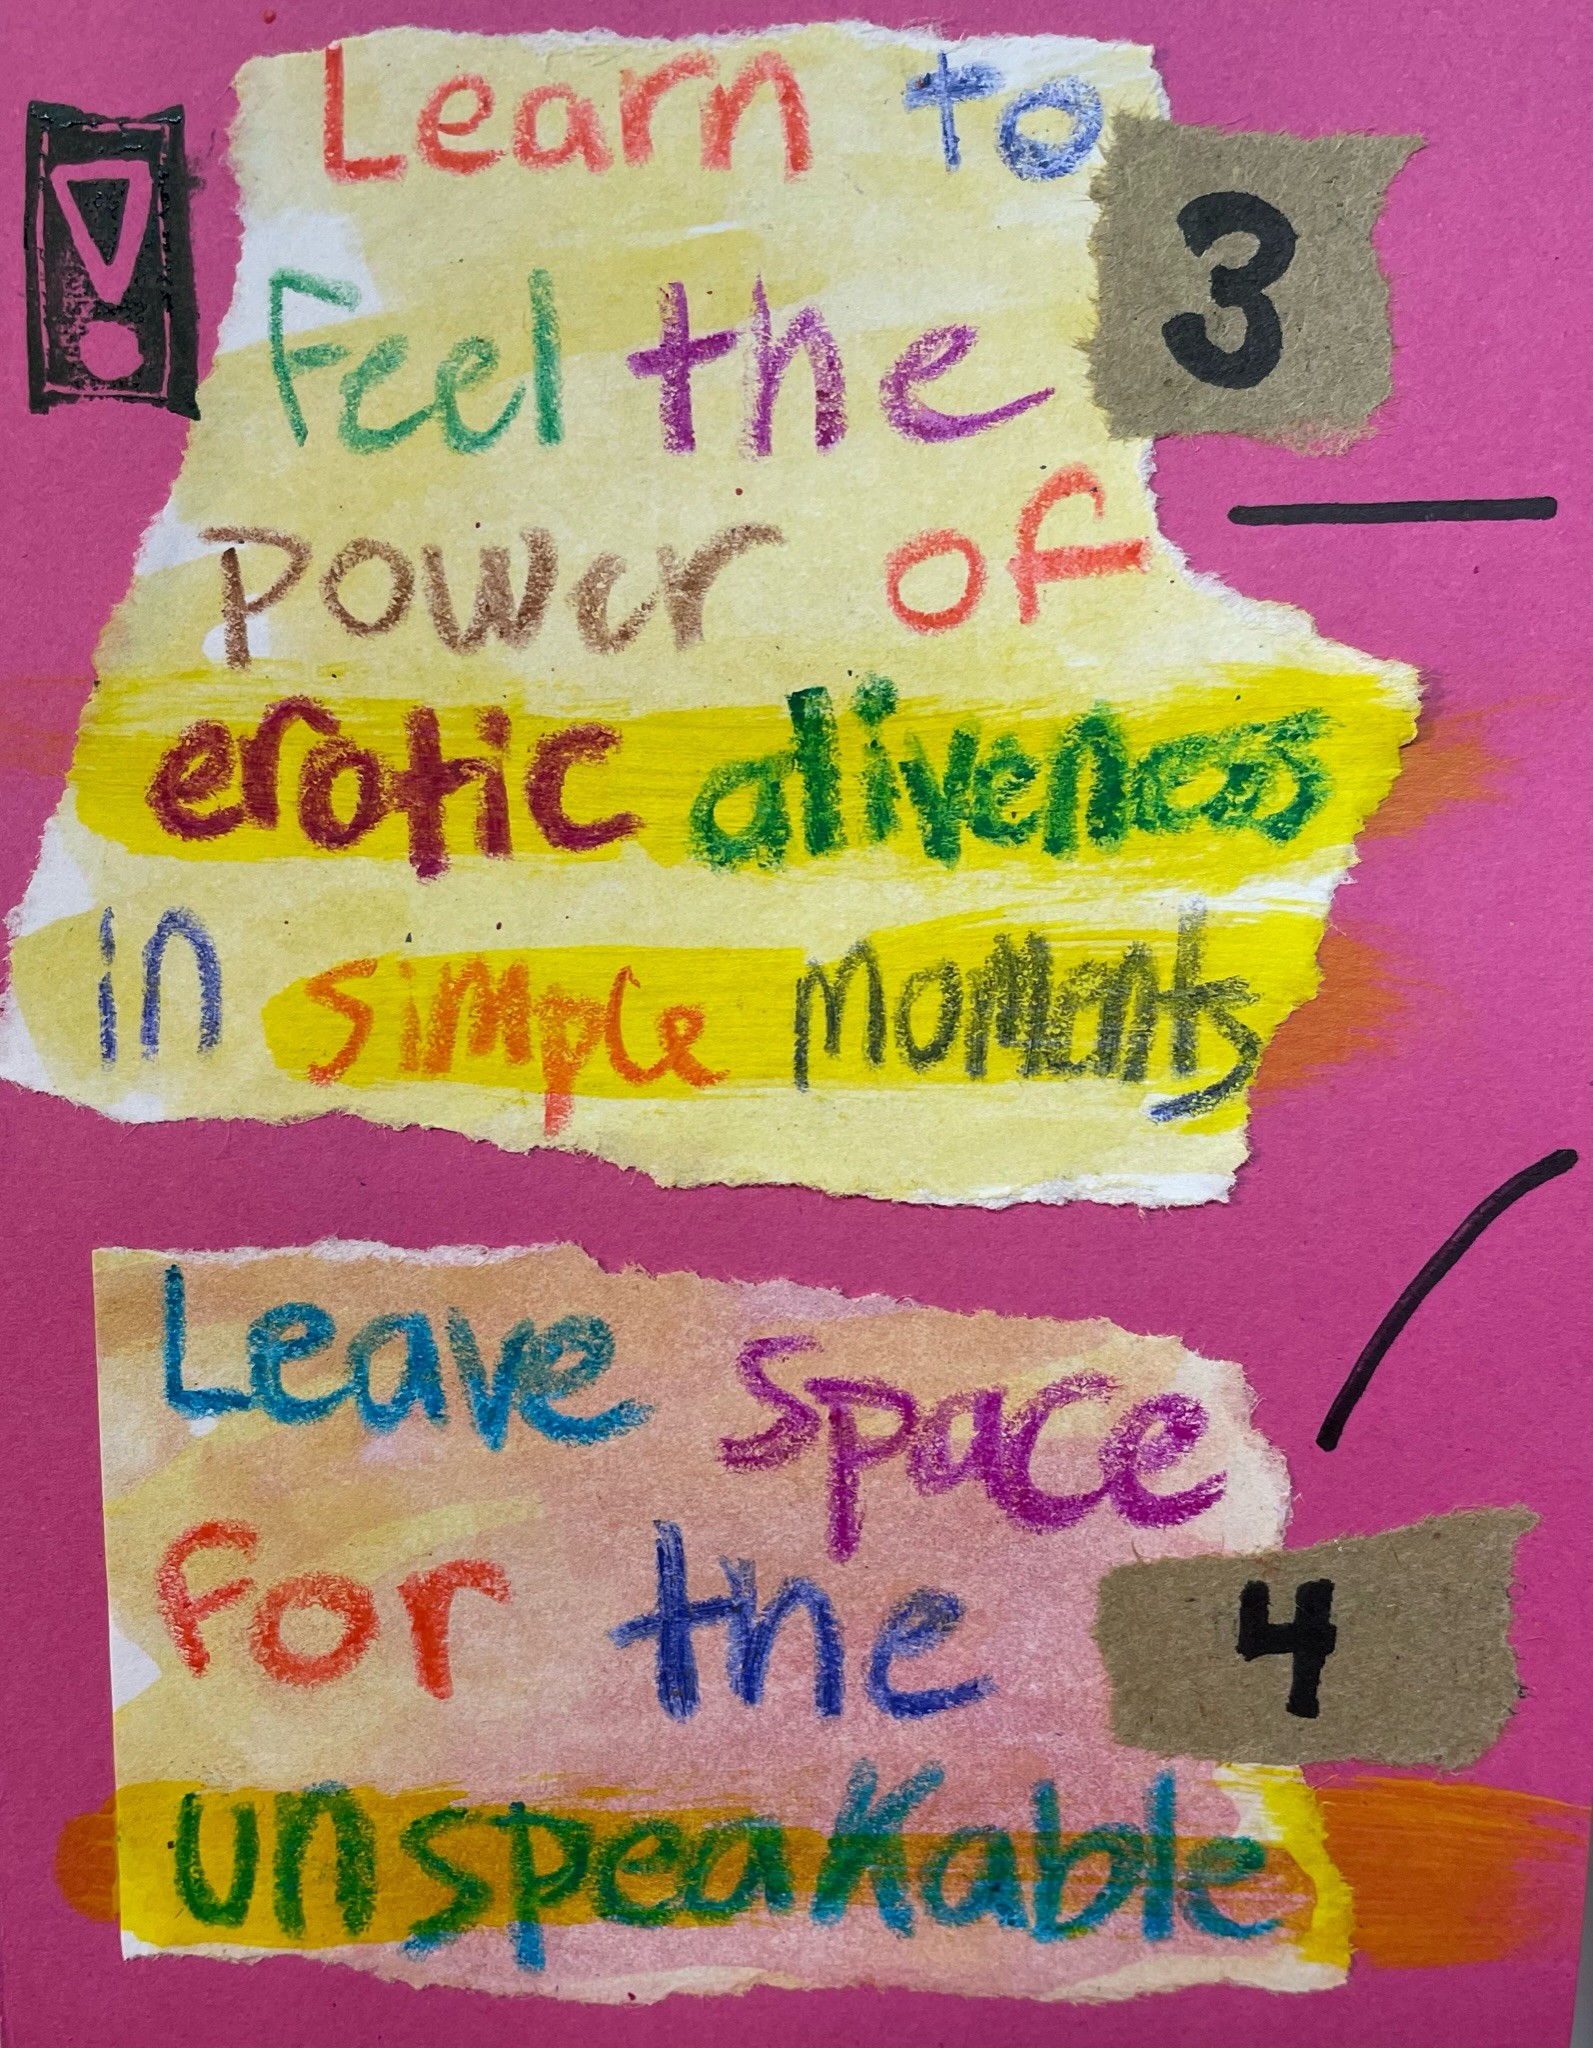 Learn to
3
Feel the
power of
erotic aliveness
in simple moments
Leave space
for the
4
unspeakable